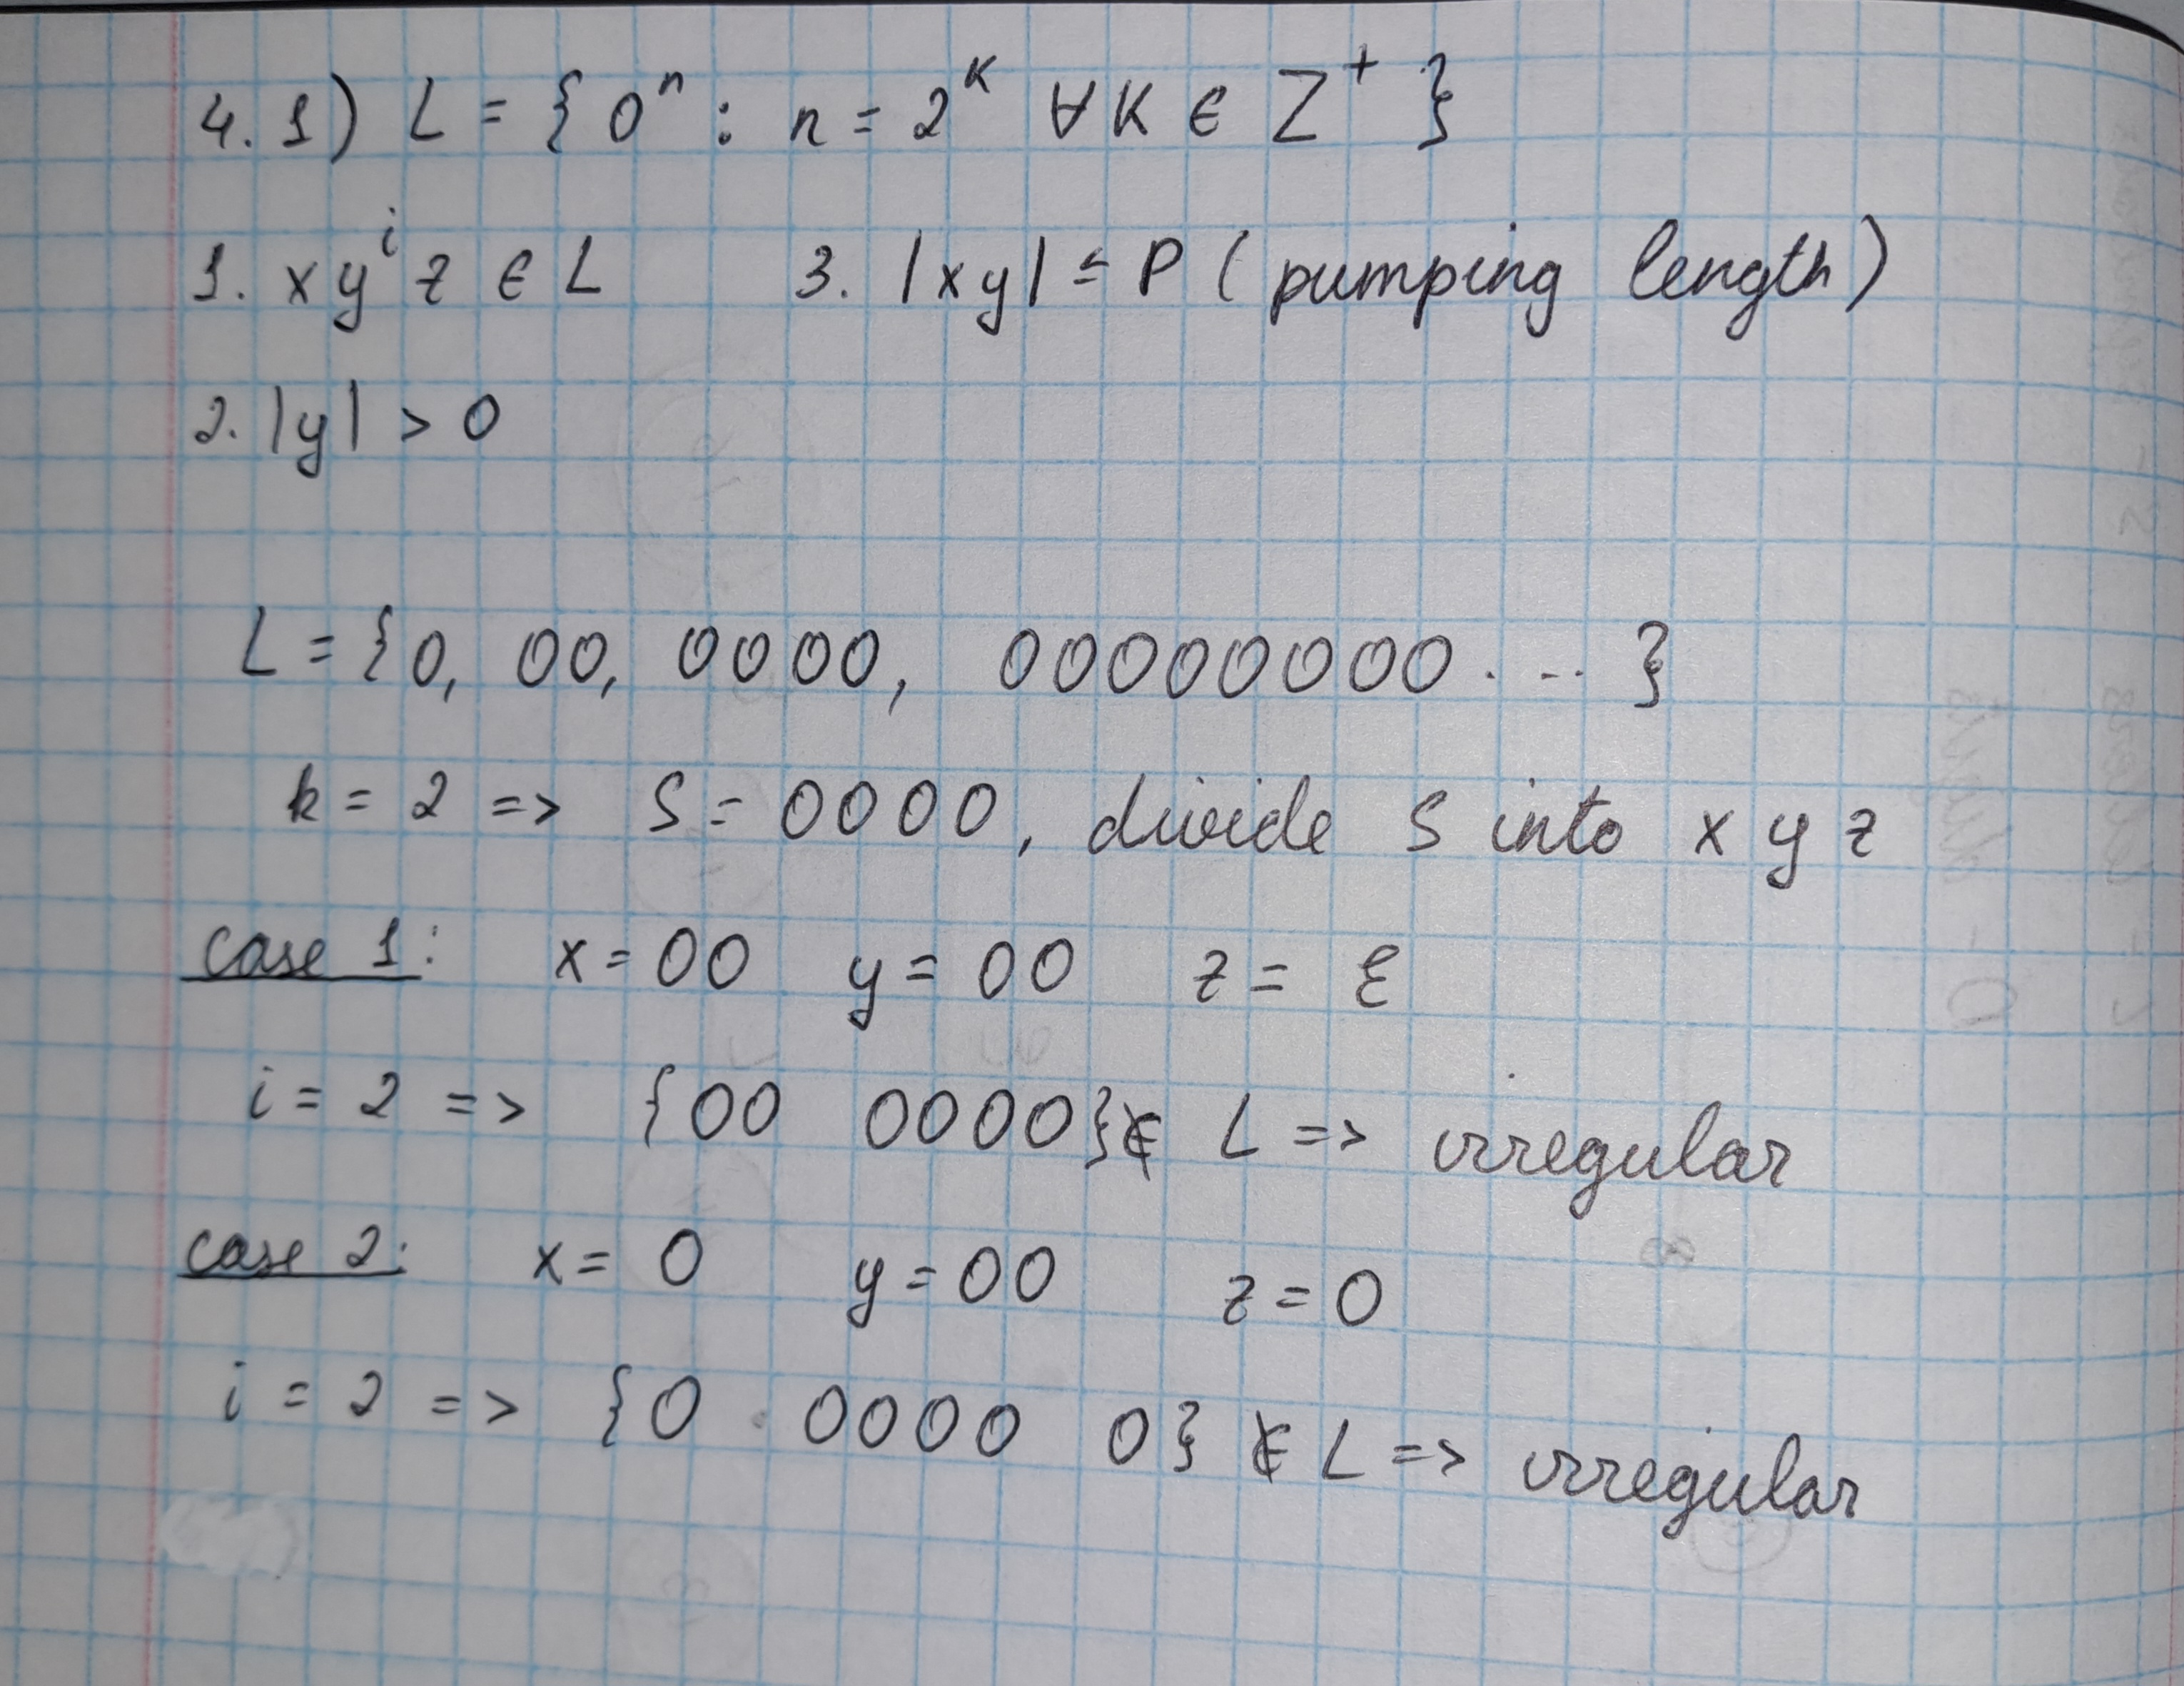 4.1) L = { 0ⁿ : n = 2ᴷ ∀ K ∈ Z⁺ }
1. x yⁱ z ∈ L 3. |xy| ≤ P (pumping length)
2. |y| > 0
L = {0, 00, 0000, 00000000 ... }
k = 2 => S = 0000, divide S into x y z
case 1: x = 00 y = 00 z = ε
i = 2 => {00 0000} ∉ L => irregular
case 2: x = 0 y = 00 z = 0
i = 2 => {0 0000 0} ∉ L => irregular